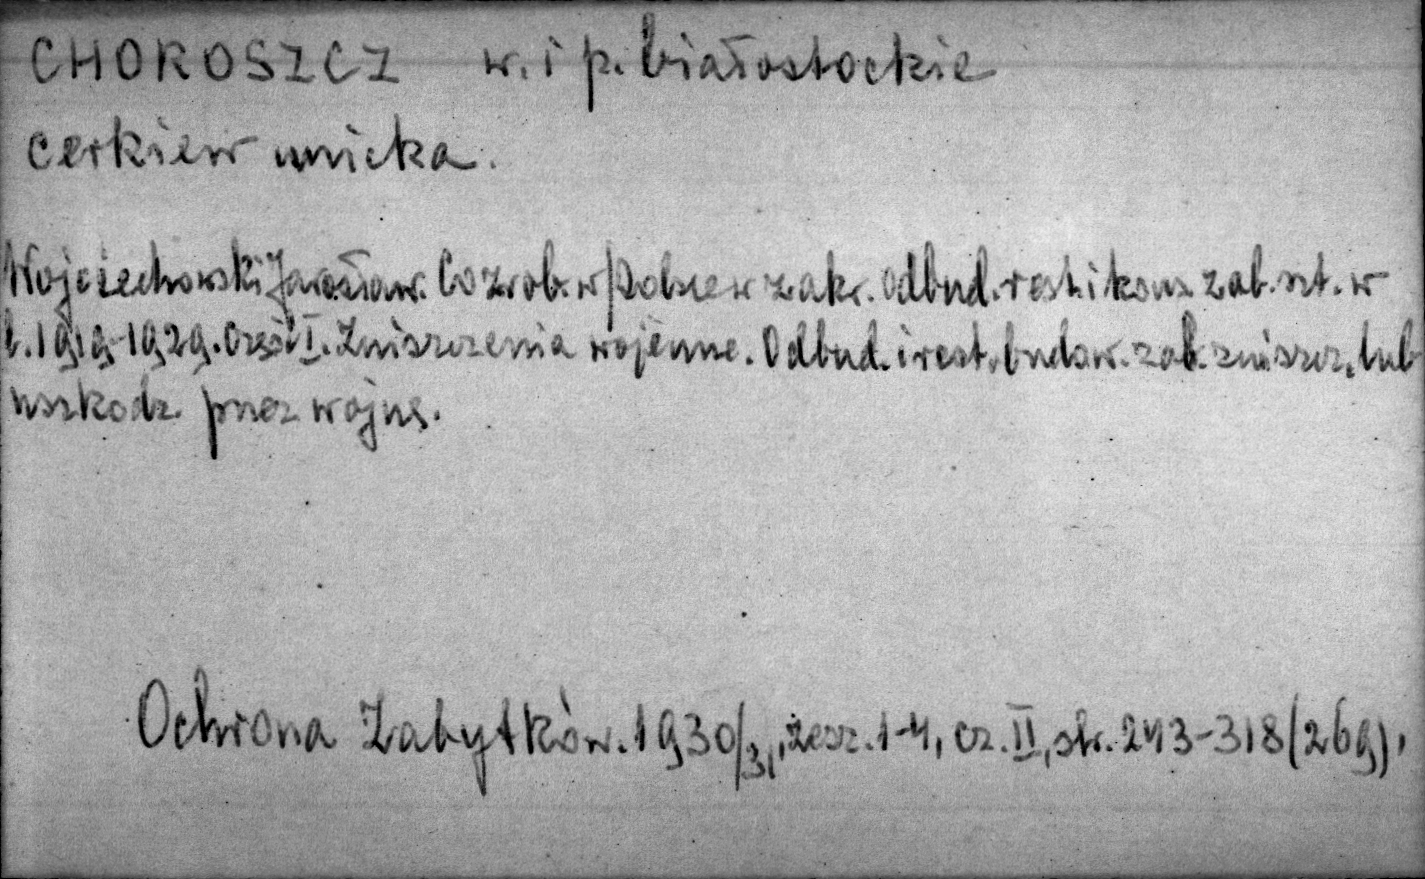 CHOROSZCZ w. i p. białostockie
cerkiew unicka.
Wojciechowski Jarosław. Co zrob. w Polsce w zakr. odbud. rest. i kons. zab. szt. w
l. 1919-1929. Część I. Zniszczenia wojenne. Odbud. i rest. budow. zab. zniszcz. lub
uszkodz. przez wojnę.
Ochrona Zabytków. 1930/31, zesz. 1-4, cz. II, str. 243-318 (269).